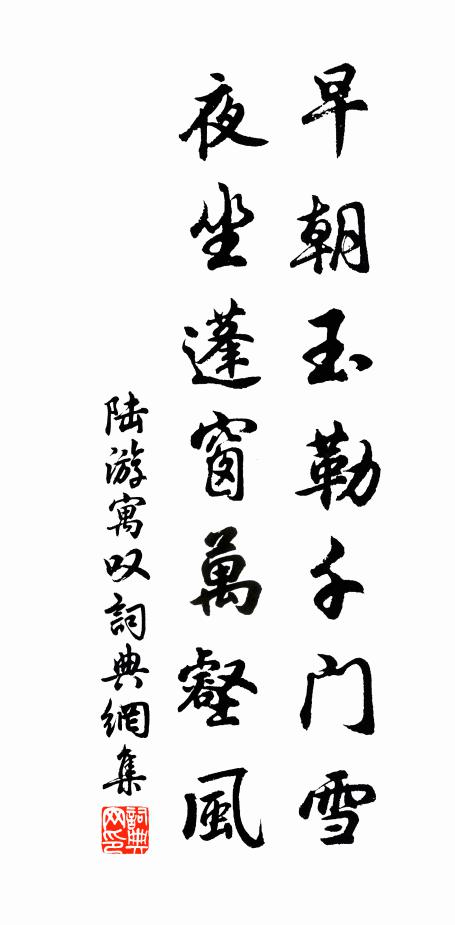 早朝玉勒千门雪
夜坐蓬窗萬壑風
陆游寓叹詞典網集
詞典网印